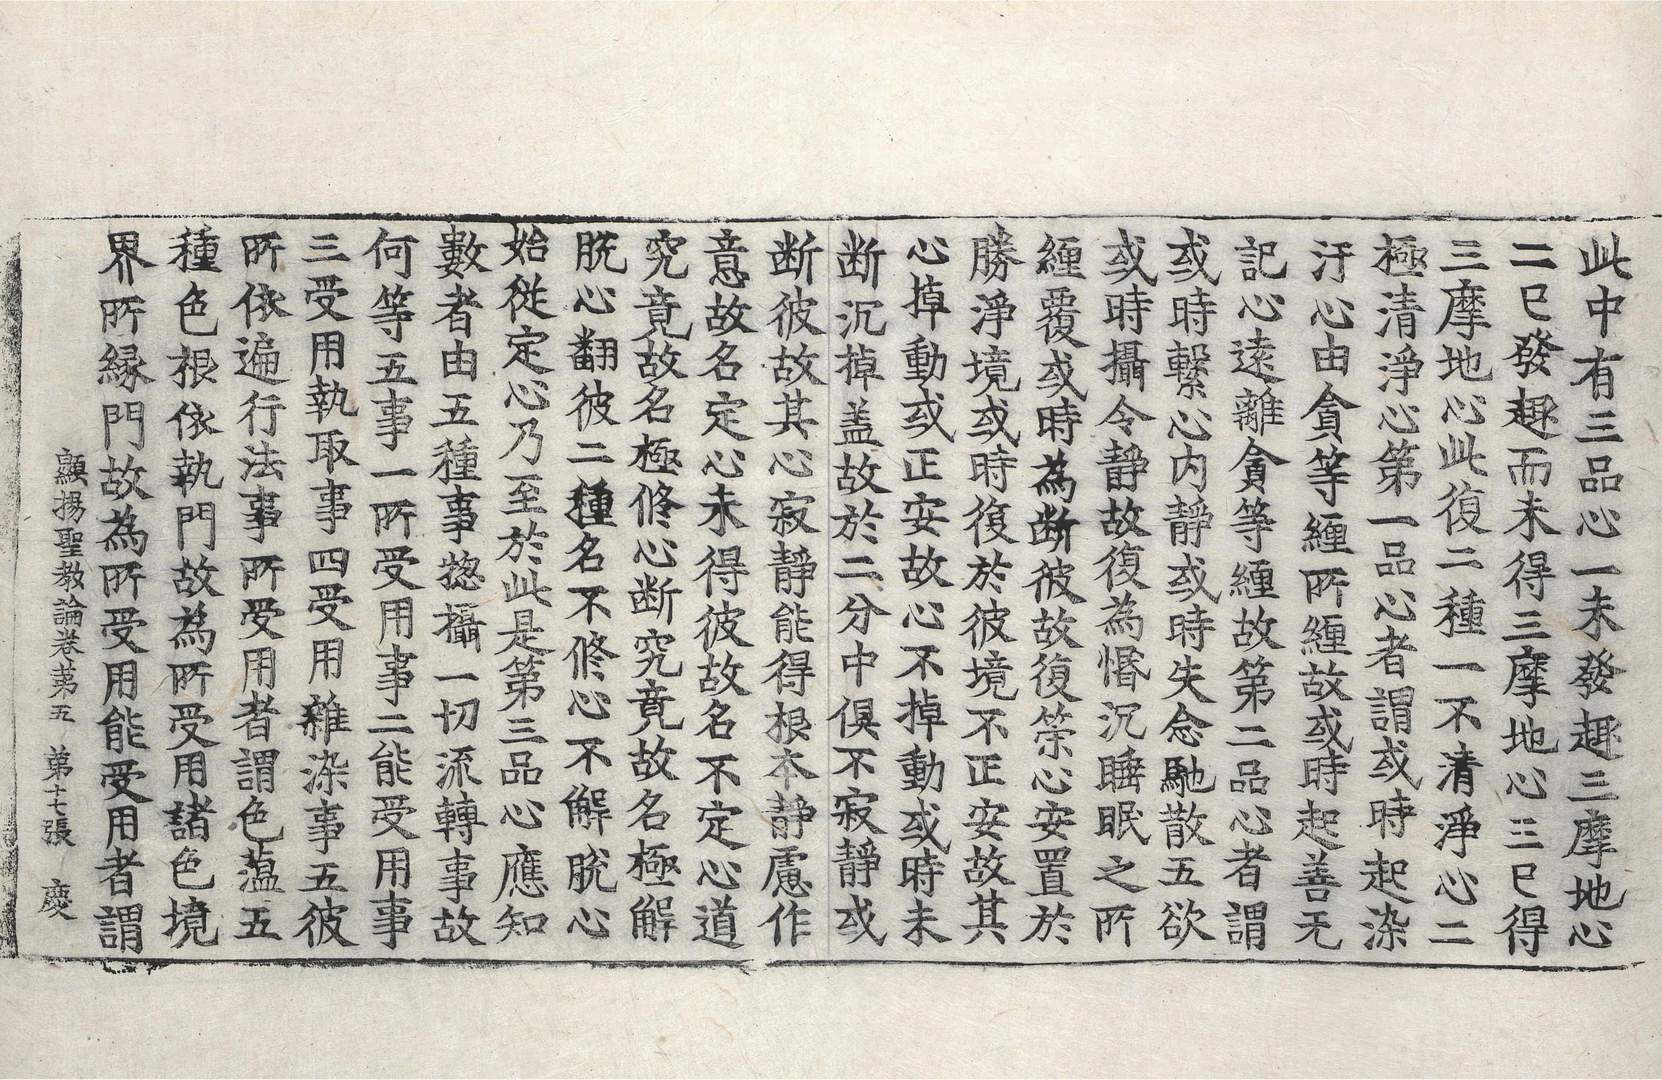 此中有三品心一未發趣三摩地心
二已發趣而未得三摩地心三已得
三摩地心此復二種一不清淨心二
極清淨心第一品心者謂或時起染
汙心由貪等纏所纏故或時起善无
記心遠離貪等纏故第二品心者謂
或時繫心內靜或時失念馳散五欲
或時攝令靜故復為惛沉睡眠之所
纏覆或時為断彼故復策心安置於
勝淨境或時復於彼境不正安故其
心掉動或正安故心不掉動或時未
断沉掉盖故於二分中俱不寂靜或
断彼故其心寂靜能得根本靜慮作
意故名定心未得彼故名不定心道
究竟故名極修心断究竟故名極解
脫心翻彼二種名不修心不解脫心
始從定心乃至於此是第三品心應知
數者由五種事揔攝一切流轉事故
何等五事一所受用事二能受用事
三受用執取事四受用雜染事五彼
所依遍行法事所受用者謂色蕴五
種色根依執門故為所受用諸色境
界所緣門故為所受用能受用者謂
顯揚聖教論卷苐五　苐十七張　慶